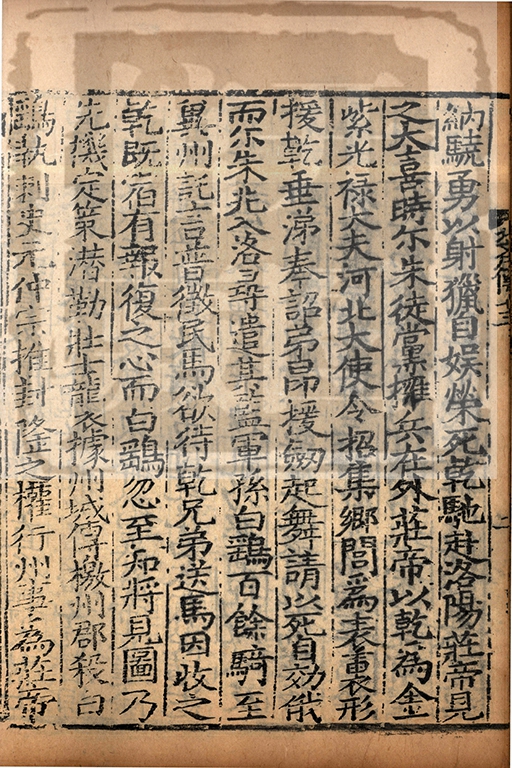 納驍勇以射獵自娛榮死乾馳赴洛陽莊帝見
之大喜時尒朱徒黨擁兵在外莊帝以乾為金
紫光祿大夫河北大使令招集鄉閭為表裏形
援乾垂涕奉詔弟昂援劒起舞請以死自効俄
而尒朱兆入洛尋遣其監軍孫白鷄百餘騎至
兾州託言普徵民馬欲待乾兄弟送馬因收之
乾既宿有報復之心而白鷄忽至知將見圖乃
先機定策潜勒壯士襲據州城傳檄州郡殺白
鷄執刺史元仲宗推封隆之權行州事為莊帝